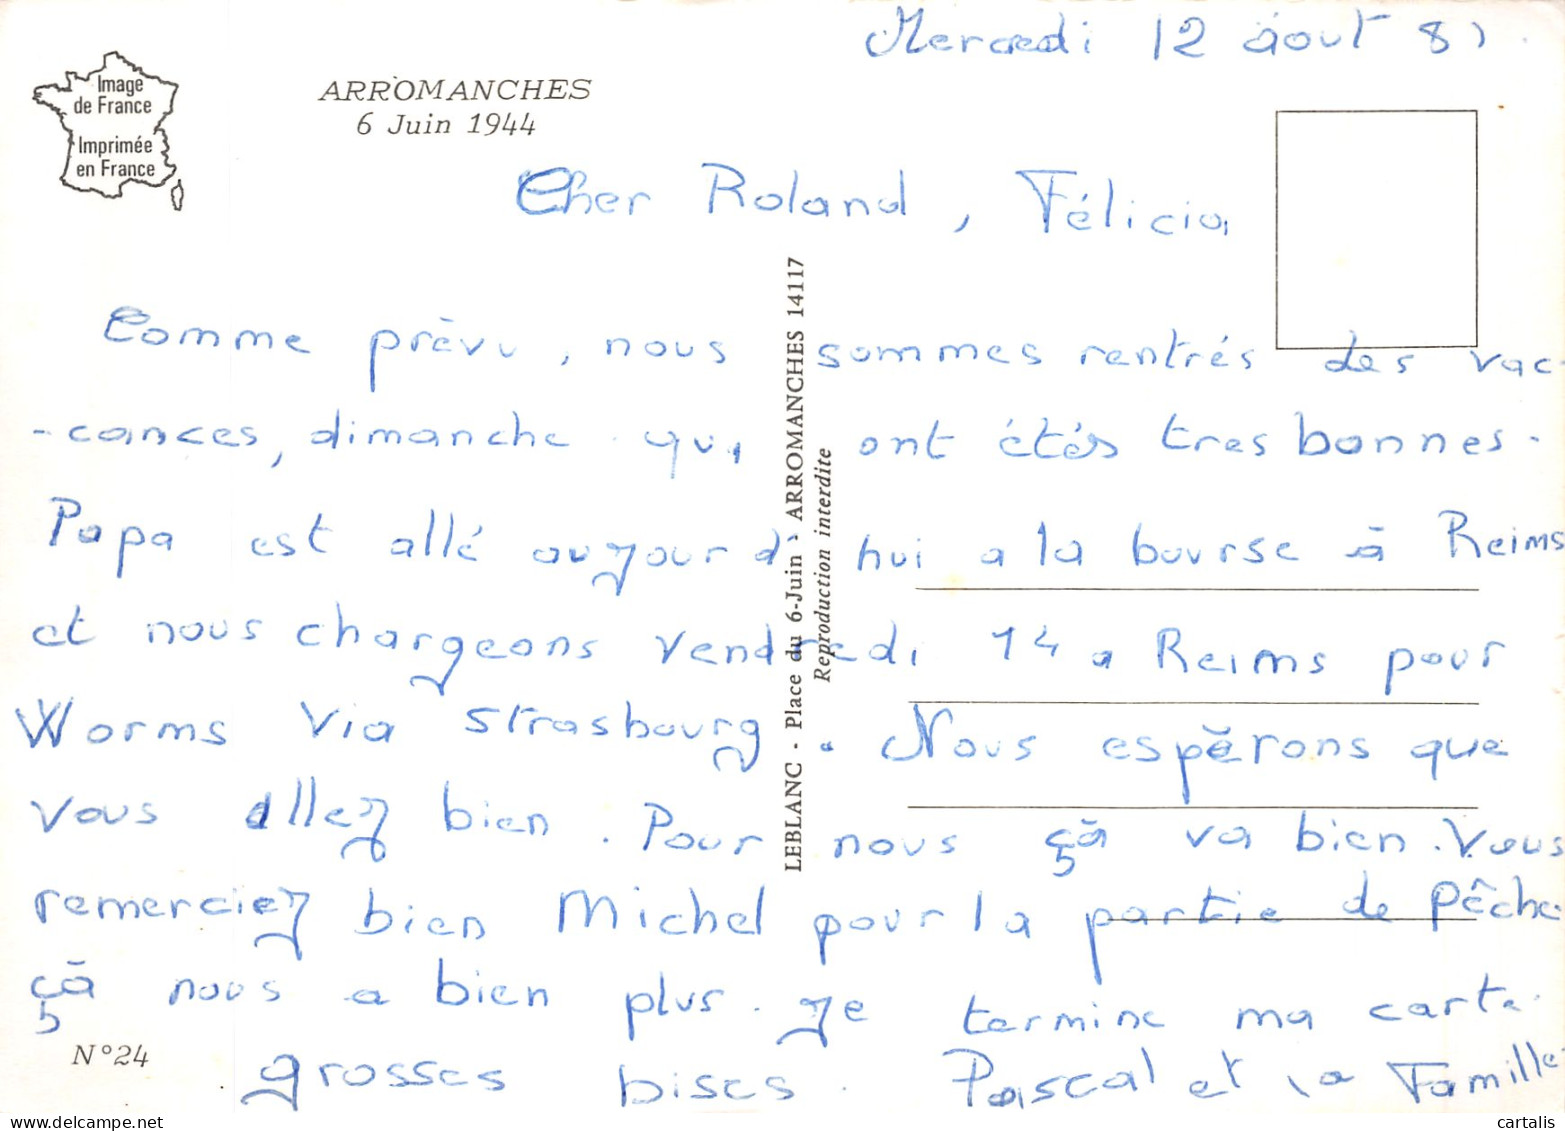 Mercredi 12 août 81.
Image
de France
Imprimée
en France
ARROMANCHES
6 Juin 1944
Cher Roland, Félicia
Comme prévu, nous sommes rentrés des vac-
-cances, dimanche qui ont étés tres bonnes.
Papa est allé aujourd'hui a la bourse à Reims
et nous chargeons vendredi 14 a Reims pour
Worms via Strasbourg. Nous espèrons que
vous allez bien. Pour nous çà va bien. Vous
remerciez bien Michel pour la partie de pêche
çà nous a bien plus. Je termine ma carte.
grosses bises. Pascal et la Famille.
N°24
LEBLANC - Place du 6-Juin - ARROMANCHES 14117
Reproduction interdite
cartalis